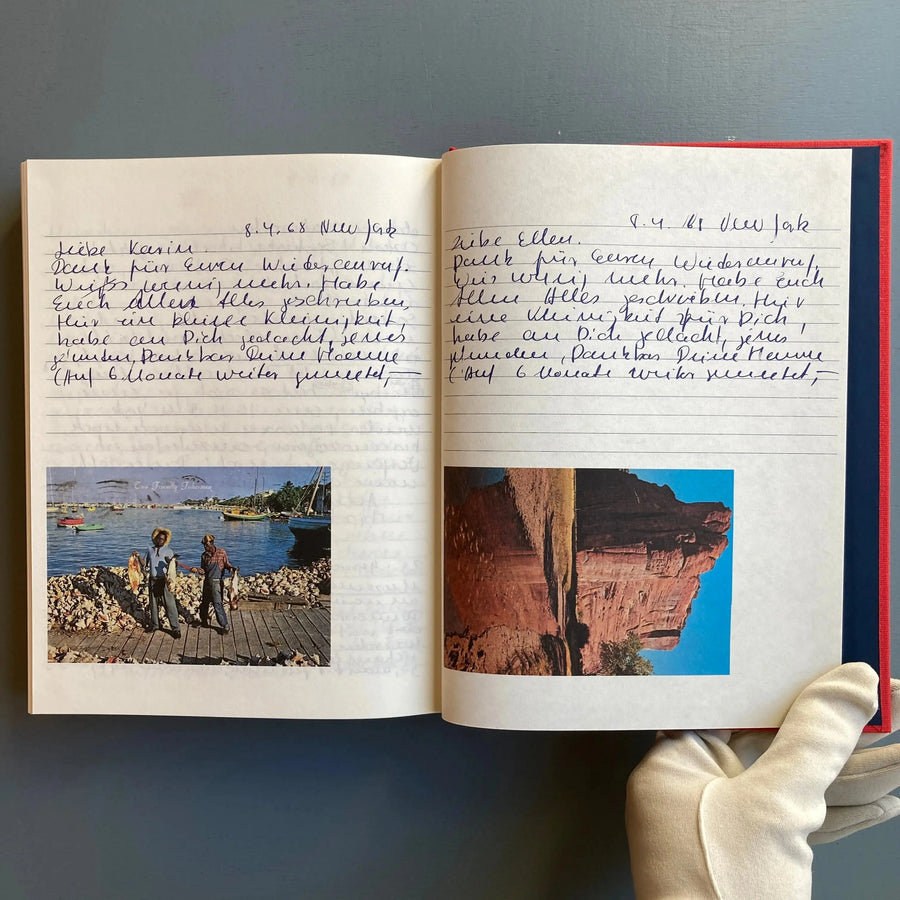 8.4.68 New Jork
Liebe Karin.
Dank für Euren Wiederanruf.
Weiss wenig mehr. Habe
Euch Allen Alles geschrieben,
Hir ein kleine Kleinigkeit,
habe an Dich gedacht, jenes
gefunden, Dankbar Deine Hanne
(Auf 6 Monate weiter gemietet,—
Two Friendly Fishermen
8.4.68 New Jork
Liebe Ellen.
Dank für Euren Wiederanruf,
Weis wenig mehr, Habe Euch
Allen Alles geschrieben, Hir
eine Kleinigkeit für Dich,
habe an Dich gedacht, jenes
gefunden, Dankbar Deine Hanne
(Auf 6 Monate weiter gemietet,—